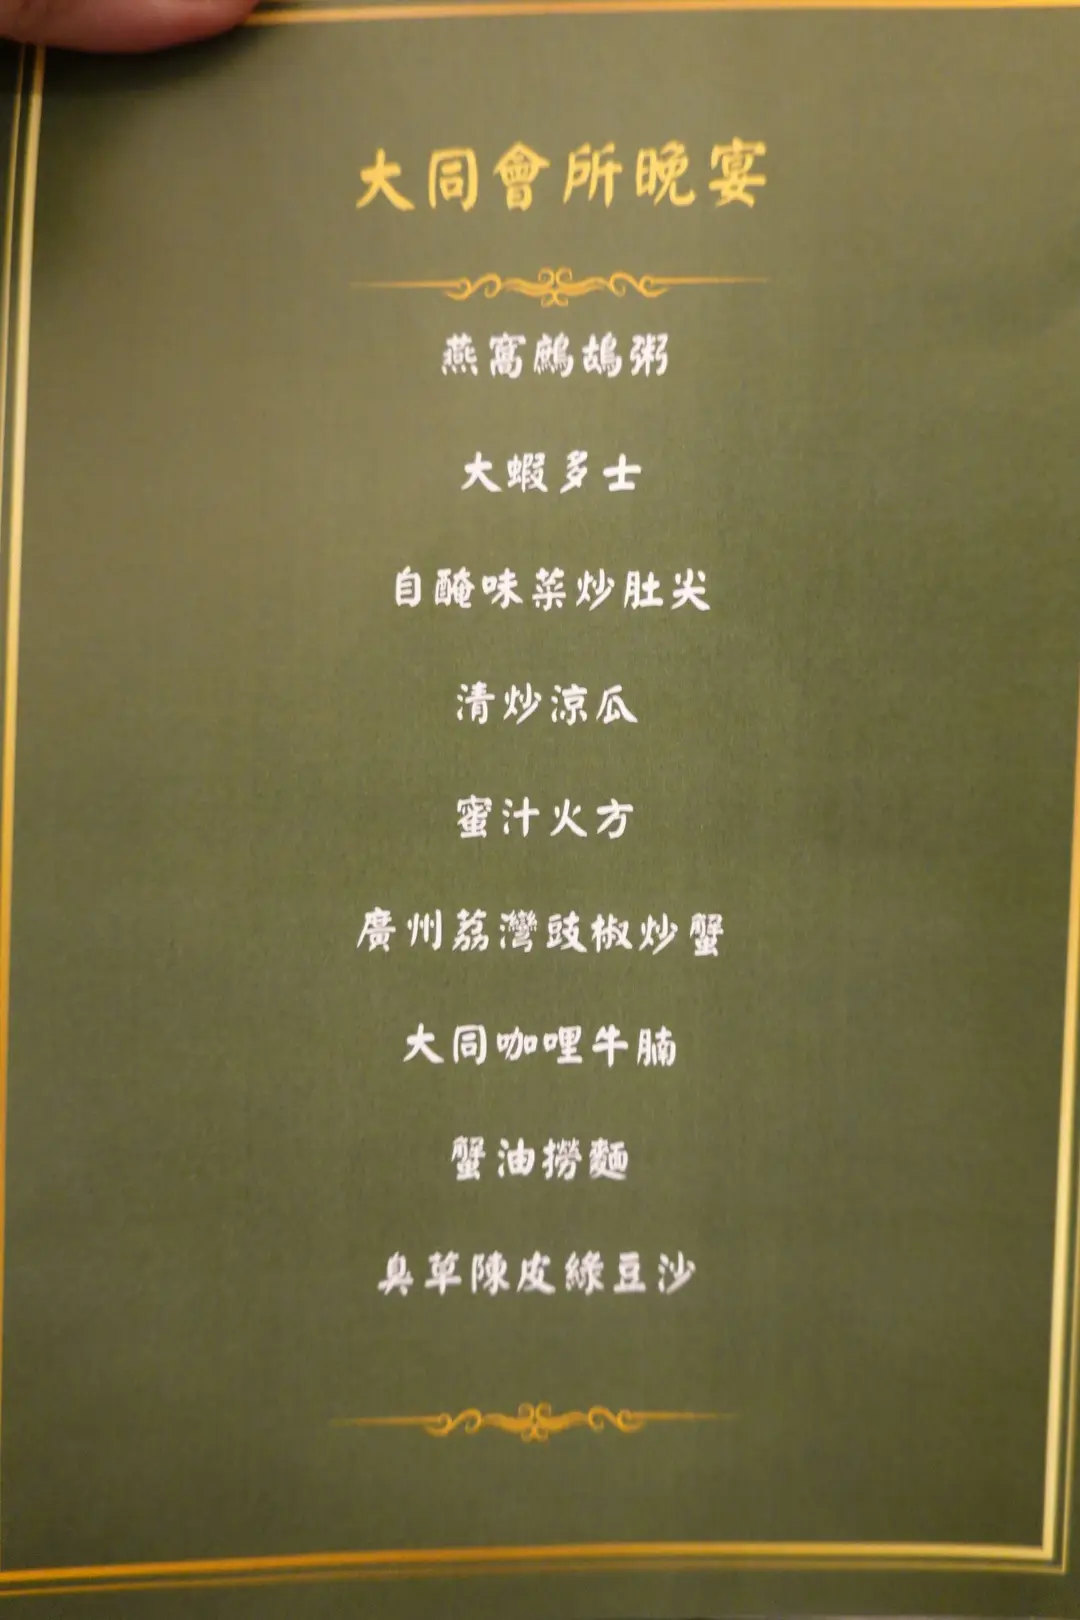 大同會所晚宴
燕窩鷓鴣粥
大蝦多士
自醃味菜炒肚尖
清炒涼瓜
蜜汁火方
廣州荔灣豉椒炒蟹
大同咖哩牛腩
蟹油撈麵
臭草陳皮綠豆沙